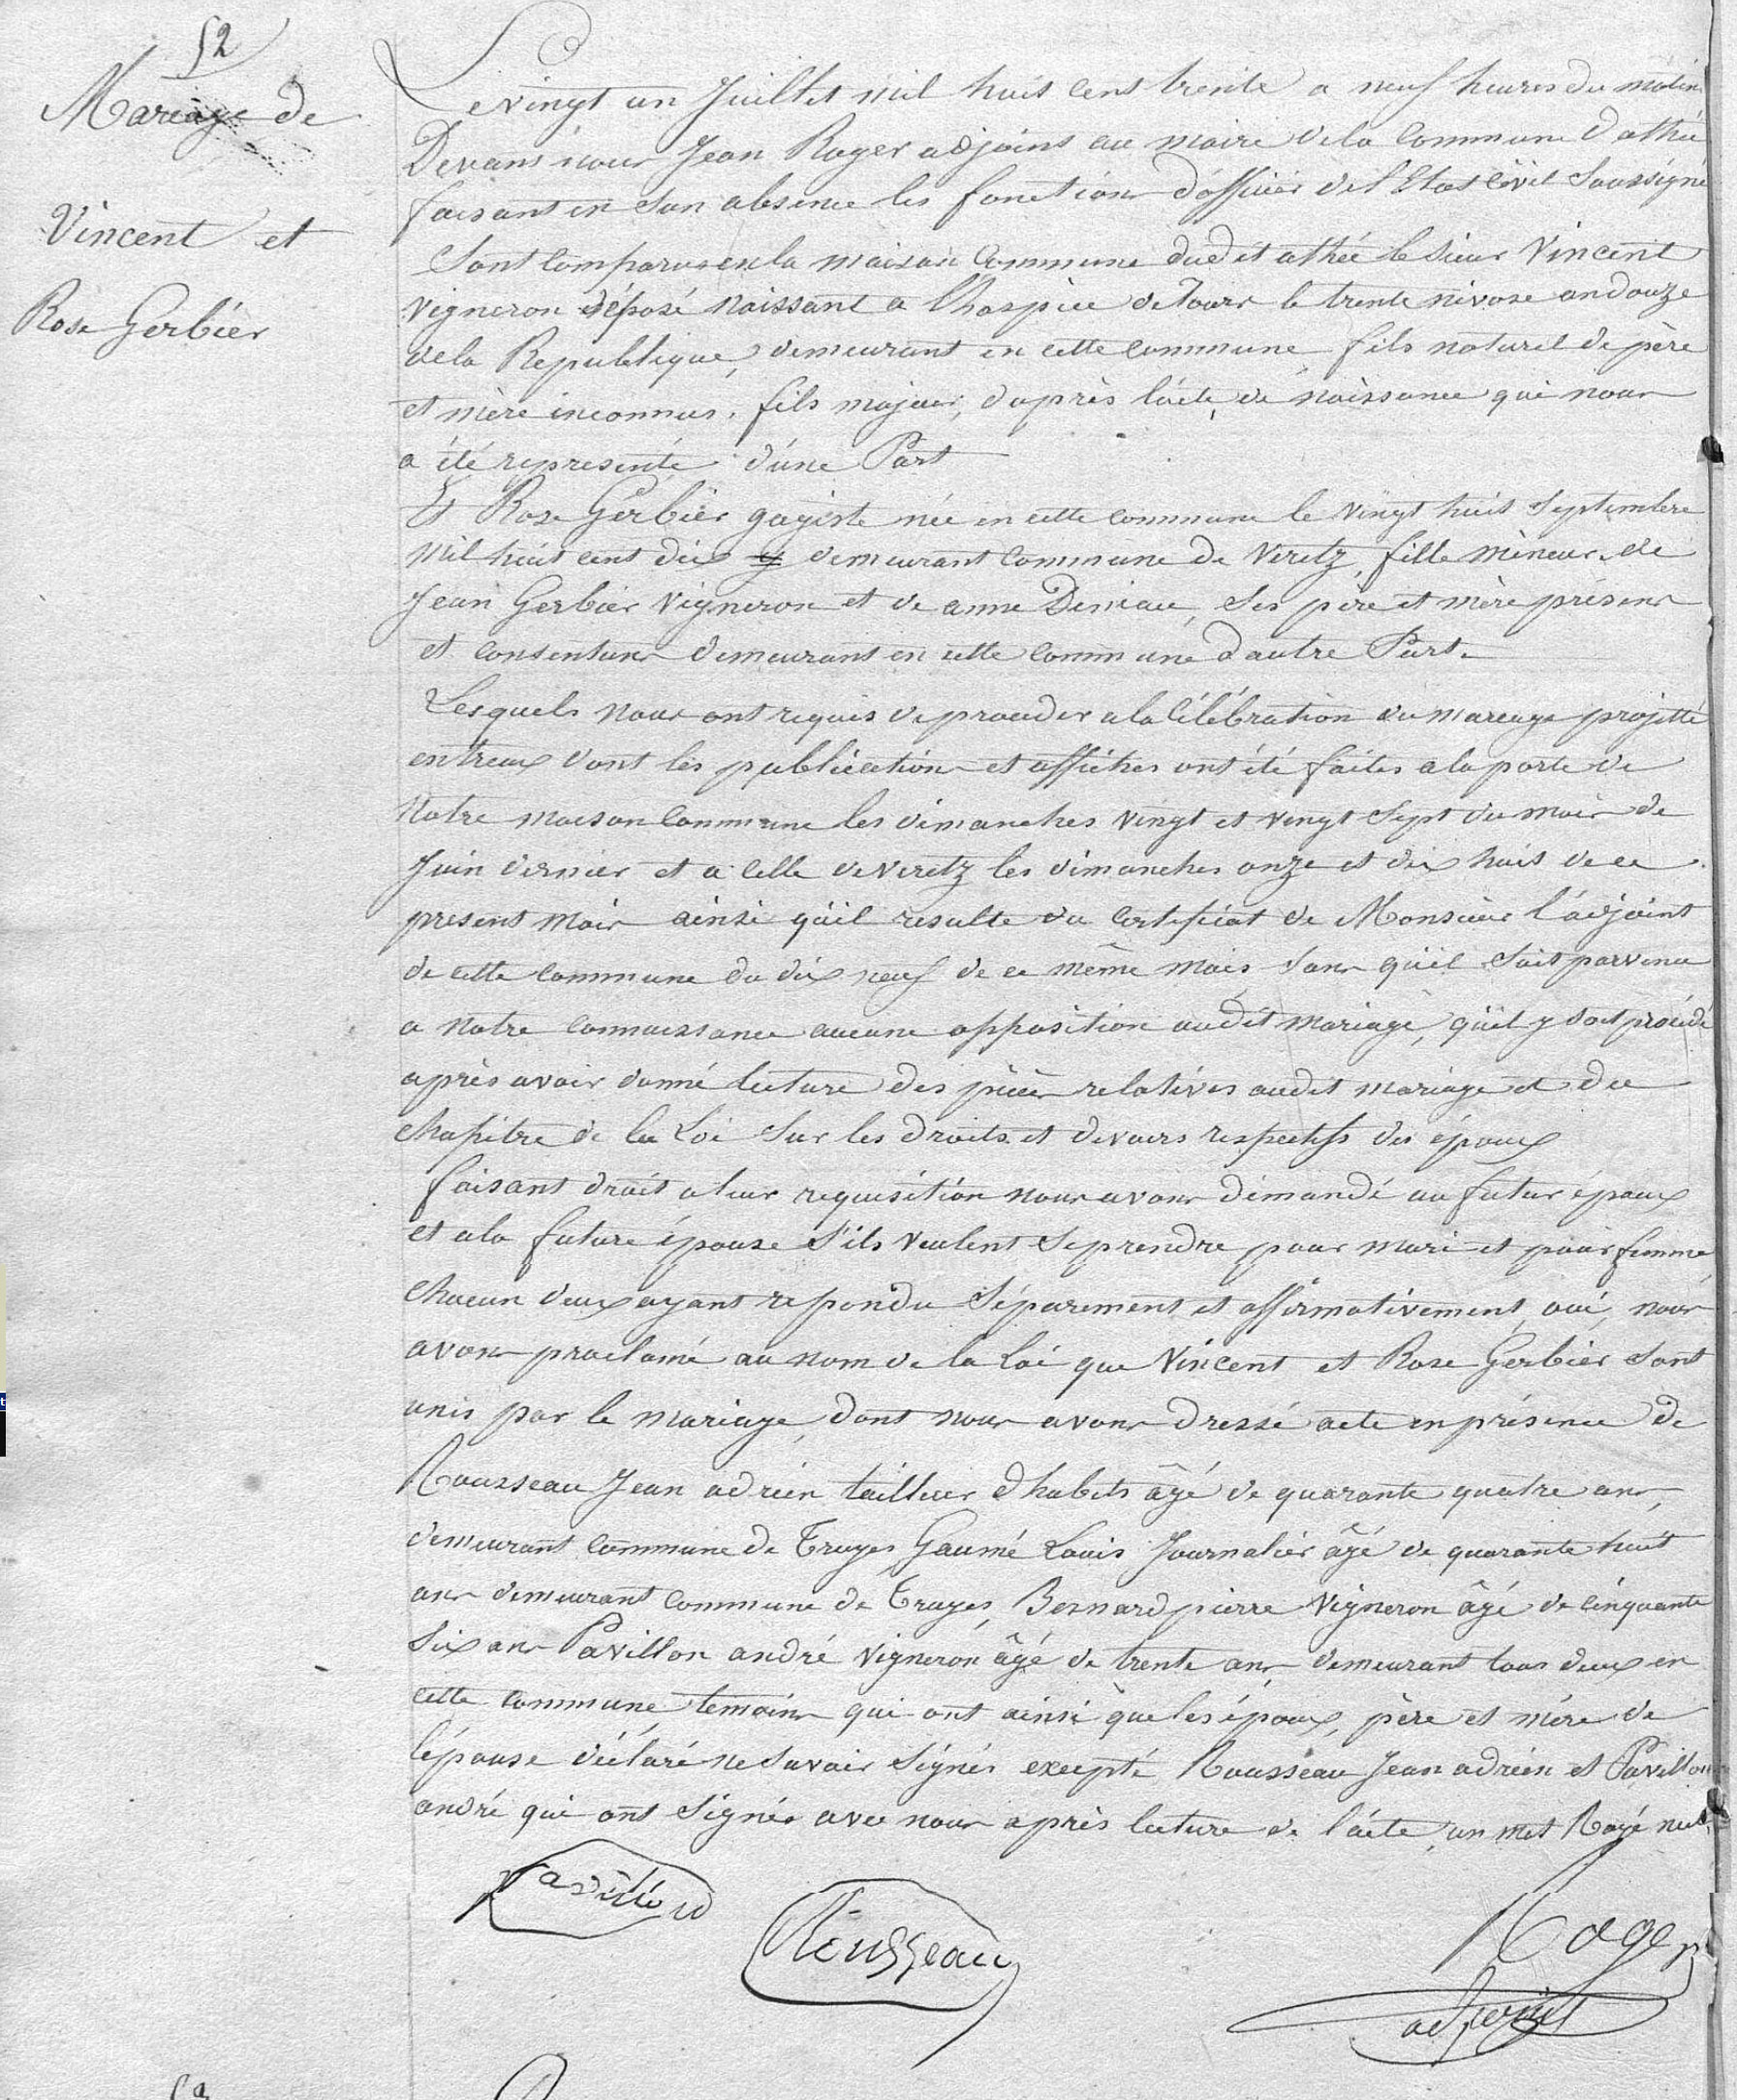 52
Mariage de
Vincent et
Rose Gerbier
Le vingt un Juillet mil huit cent trente a neuf heures du matin
Devant nous Jean Roger adjoint au maire de la Commune d'athée
faisant en son absence les fonctions d'officier de l'Etat Civil Soussigné
Sont Comparus en la maison Commune dudit athée le sieur Vincent
vigneron déposé naissant a l'hospice de Tours le trente nivose an douze
de la Republique, demeurant en cette commune fils naturel de père
et mère inconnus, fils majeur, d'après l'acte de naissance qui nous
a été representé d'une Part
Et Rose Gerbier gagiste née en cette commune le vingt huit Septembre
mil huit cent dix demeurant commune de Veretz, fille mineure de
Jean Gerbier Vigneron et de anne Deniau, ses père et mère présens
et consentans demeurant en cette commune d'autre Part.
Lesquels nous ont requis de proceder a la Célébration du mareage projetté
entreux dont les publications et affiches ont été faites a la porte de
Notre maison Commune les dimanches vingt et vingt Sept du mois de
Juin dernier et a Celle de Veretz les dimanches onze et dix huit de ce
present mois ainsi qu'il resulte du Certificat de Monsieur l'adjoint
de cette commune du dix neuf de ce même mois sans qu'il Soit parvenu
a notre connaissance aucune opposition audit mariage, qu'il y soit procédé
après avoir donné lecture des pièces relatives audit mariage et du
Chapitre de la Loi sur les droits et devoirs respectifs des époux
faisant droit a leur requisition nous avons demandé au futur époux
et a la future épouse s'ils veulent se prendre pour mari et pour femme
Chacun deux ayant repondu Séparement et affirmativement oui, nous
avons proclamé au nom de la Loi que Vincent et Rose Gerbier Sont
unis par le mariage, dont nous avons dressé acte en présence de
Rousseau Jean adrien tailleur d'habits âgé de quarante quatre ans,
demeurant commune de Truyes Gaumé Louis Journalier âgé de quarante huit
ans demeurant commune de Truyes, Bernard pierre Vigneron âgé de cinquante
Six ans Pavillon andré vigneron âgé de trente ans demeurant tous deux en
cette commune temoins qui ont ainsi que les époux, père et mère de
l'épouse déclaré ne Savoir Signer excepté Rousseau Jean adrien et Pavillon
andré qui ont Signés avec nous après lecture de l'acte, un mot Rayé nul
Pavillon
Rousseau
Roger
adjoint